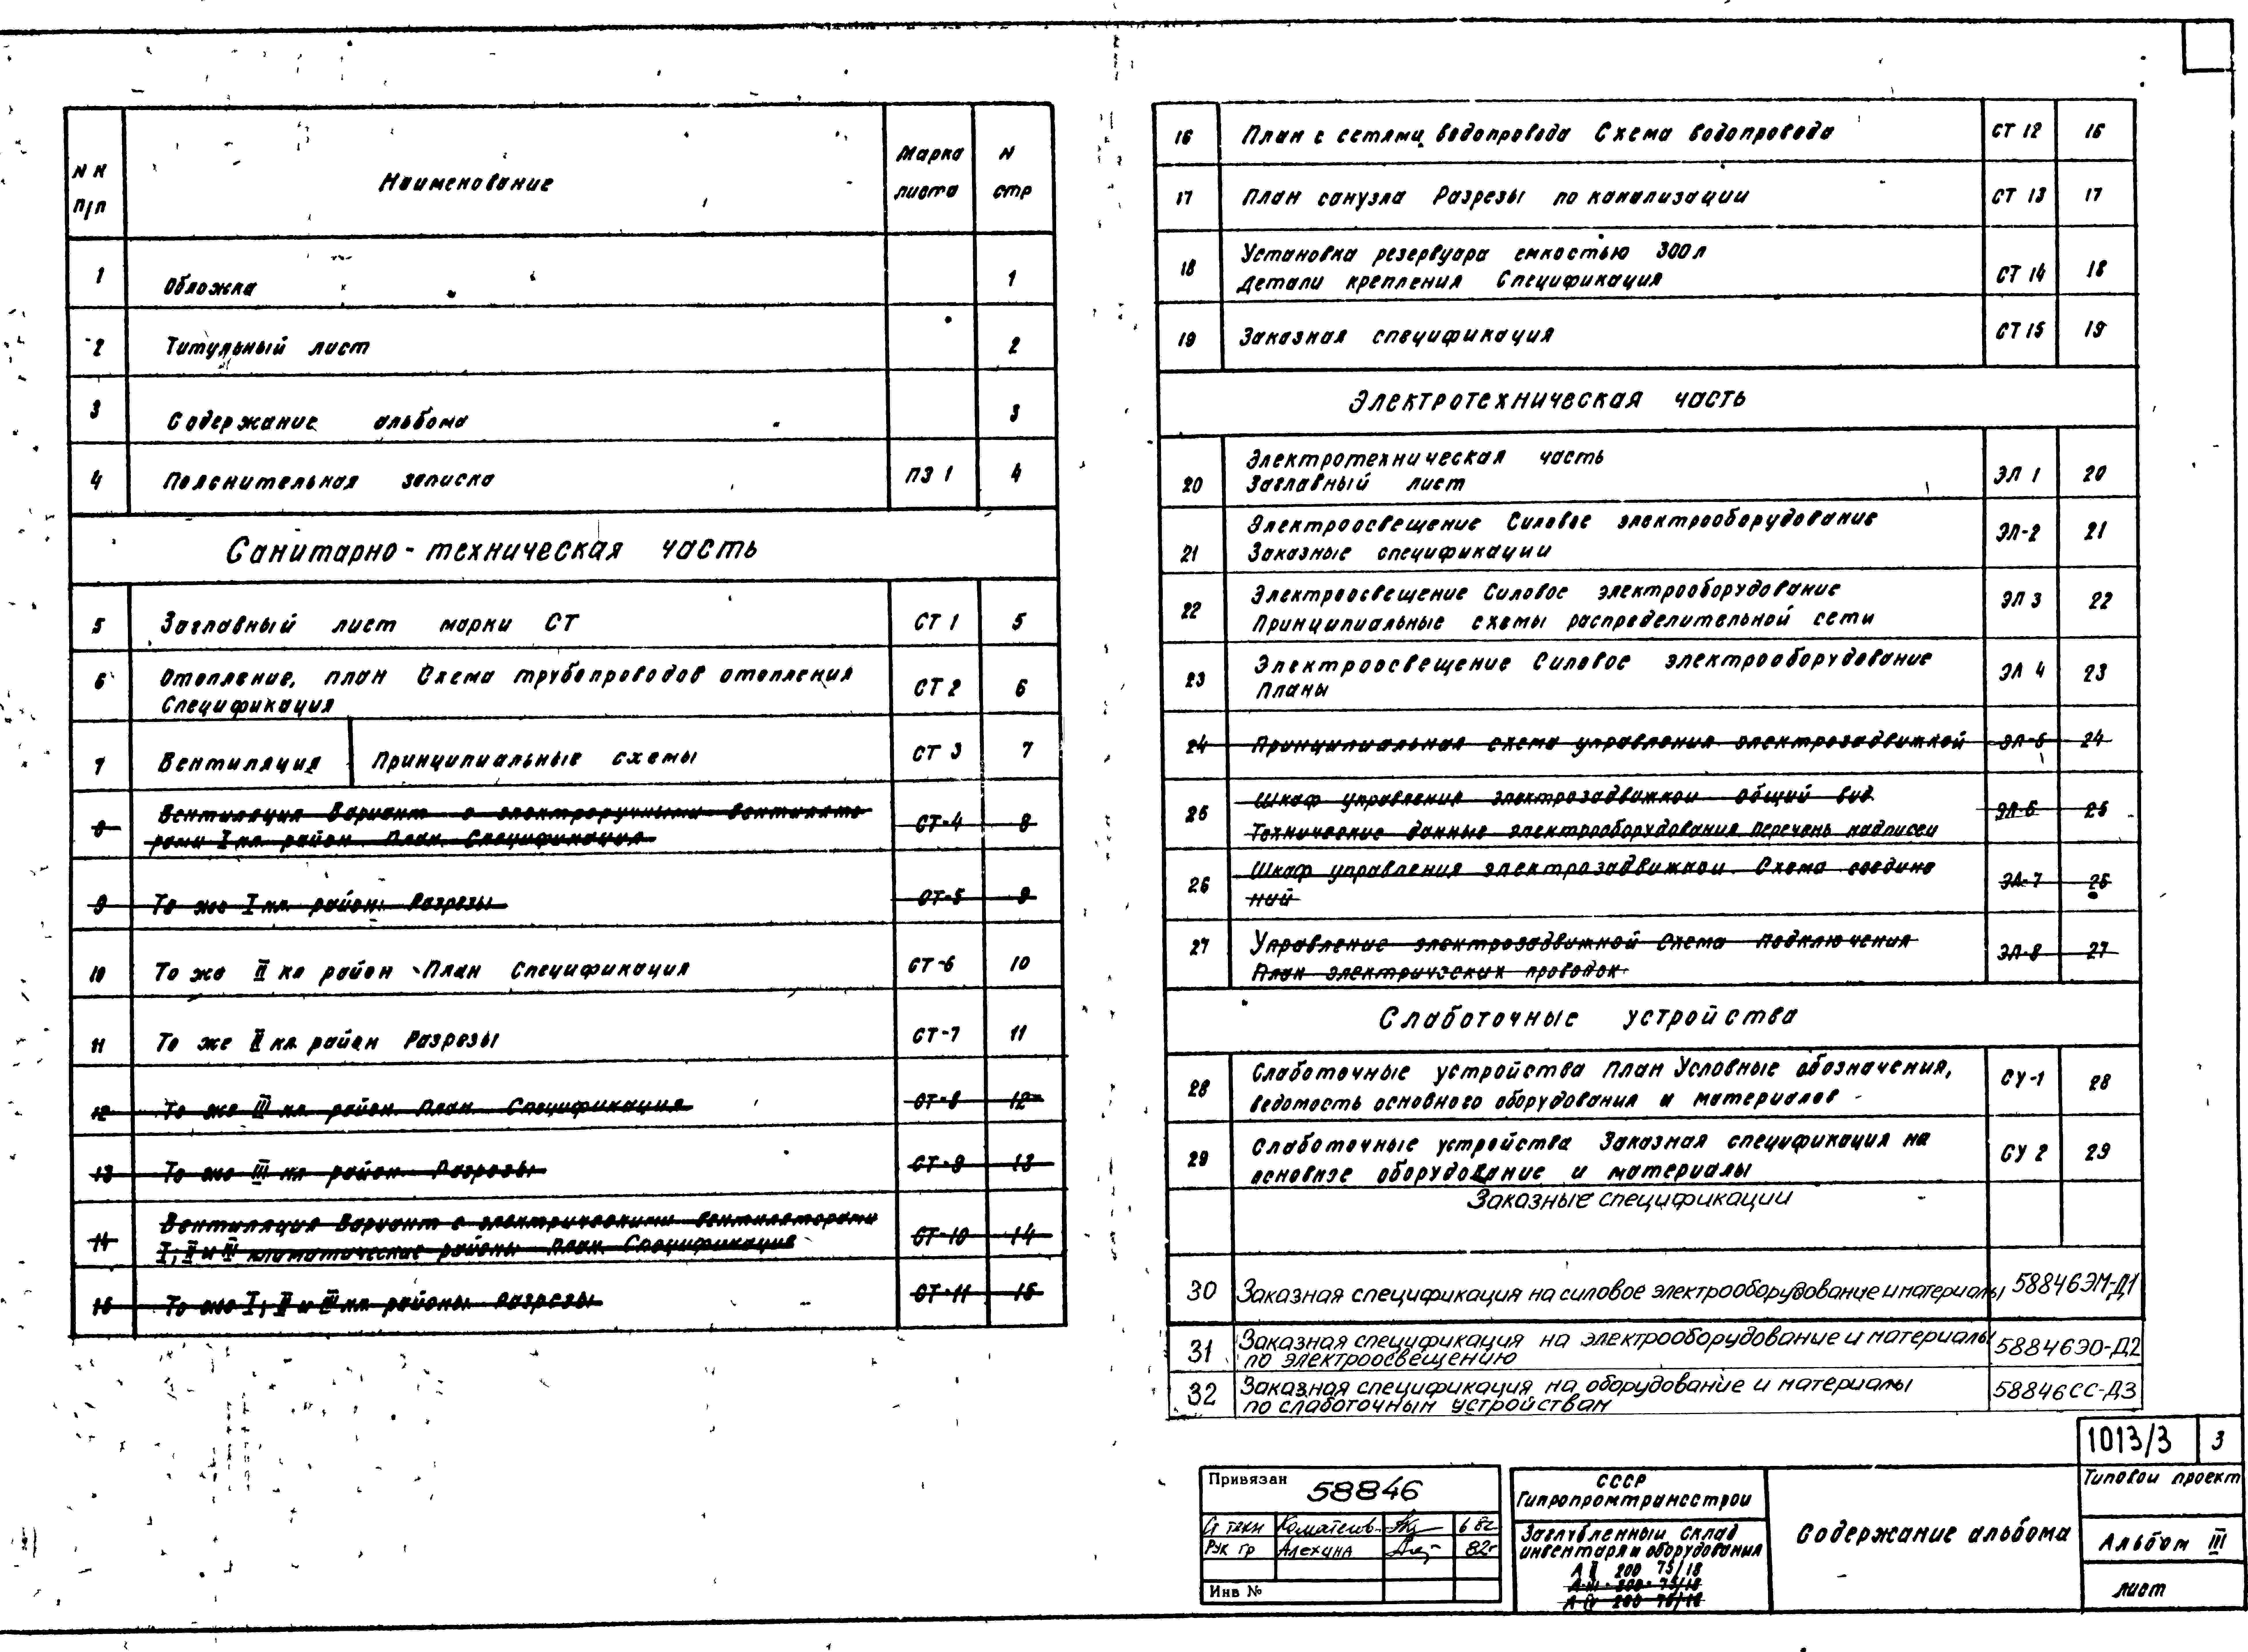 N N п/п Наименование Марка листа N стр
1 Обложка 1
2 Титульный лист 2
3 Содержание альбома 3
4 Пояснительная записка ПЗ 1 4
Санитарно-техническая часть
5 Заглавный лист марки СТ СТ 1 5
6 Отопление, план Схема трубопроводов отопления
Спецификация СТ 2 6
7 Вентиляция Принципиальные схемы СТ 3 7
8 Вентиляция Вариант с электроручными вентилято
рами I кл район План. Спецификация СТ-4 8
9 То же I кл район. Разрезы СТ-5 9
10 То же II кл район План Спецификация СТ-6 10
11 То же II кл район Разрезы СТ-7 11
12 То же III кл район План Спецификация СТ-8 12
13 То же III кл район. Разрезы СТ-9 13
14 Вентиляция Вариант с электрическими вентиляторами
I, II и III климатические районы План. Спецификация СТ-10 14
15 То же I, II и III кл районы Разрезы СТ-11 15
16 План с сетями водопровода Схема водопровода СТ 12 16
17 План санузла Разрезы по канализации СТ 13 17
18 Установка резервуара емкостью 300л
детали крепления Спецификация СТ 14 18
19 Заказная спецификация СТ 15 19
Электротехническая часть
20 Электротехническая часть
Заглавный лист ЭЛ 1 20
21 Электроосвещение Силовое электрооборудование
Заказные спецификации ЭЛ-2 21
22 Электроосвещение Силовое электрооборудование
Принципиальные схемы распределительной сети ЭЛ 3 22
23 Электроосвещение Силовое электрооборудование
Планы ЭЛ 4 23
24 Принципиальная схема управления электрозадвижкой ЭЛ-5 24
25 Шкаф управления электрозадвижкой Общий вид
Технические данные электрооборудования перечень надписей ЭЛ-6 25
26 Шкаф управления электрозадвижкой. Схема соедине
ний ЭЛ-7 26
27 Управление электрозадвижкой Схема подключения
План электрических проводок ЭЛ-8 27
Слаботочные устройства
28 Слаботочные устройства План Условные обозначения,
ведомость основного оборудования и материалов СУ-1 28
29 Слаботочные устройства Заказная спецификация на
основное оборудование и материалы СУ 2 29
Заказные спецификации
30 Заказная спецификация на силовое электрооборудование и материалы 58846ЭМ-Д1
31 Заказная спецификация на электрооборудование и материалы
по электроосвещению 58846ЭО-Д2
32 Заказная спецификация на оборудование и материалы
по слаботочным устройствам 58846СС-Д3
1013/3 3
Привязан 58846
Ст техн 6 82г
Рук гр Алехина 82г
Инв №
СССР
Гипропромтрансстрой
Заглубленный склад
инвентаря и оборудования
А II 200 75/18
А-III-200-75/18
А IV 200 75/18
Содержание альбома
Типовой проект
Альбом III
лист